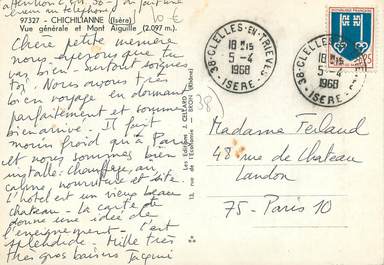 97327 - CHICHILIANNE (Isère)
Vue générale et Mont Aiguille (2.097 m.)
10 €
Chère petite mémère
nous espérons que tu
vas bien. surtout soignes
toi. Nous avons très
bien voyagé en dormant
parfaitement et sommes
bien arrivé. Il fait
moins froid qu'à Paris
et nous sommes bien
installé : chauffage, au
calme nourriture et site
L'hôtel est un vieux beau
chateau - la carte te
donne une idée de
l'enneigement - C'est
splendide - Mille très
très gros baisers Jacqui
Les Editions CELLARD
13, rue de l'Economie - BRON (Rhône)
38-CLELLES-EN-TRIEVES
18H15
5-4
1968
ISERE
38-CLELLES-EN-TRIEVES
18H15
5-4
1968
ISERE
REPUBLIQUE FRANÇAISE
0,25
38
Madame Ferland
48 rue de Chateau
Landon
75 - Paris 10